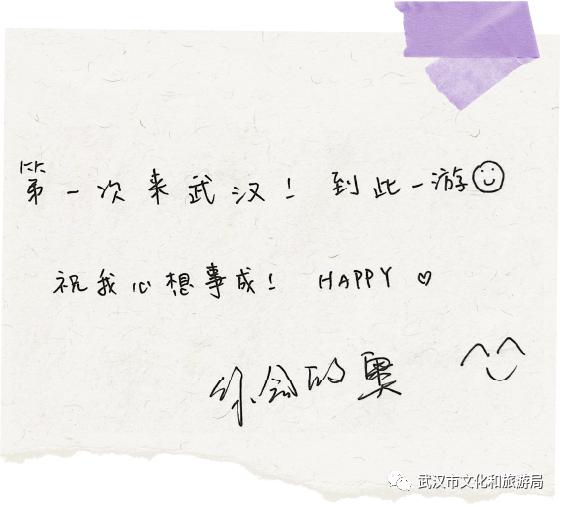 第一次来武汉！到此一游
祝我心想事成！ HAPPY ♡
的奥
武汉市文化和旅游局